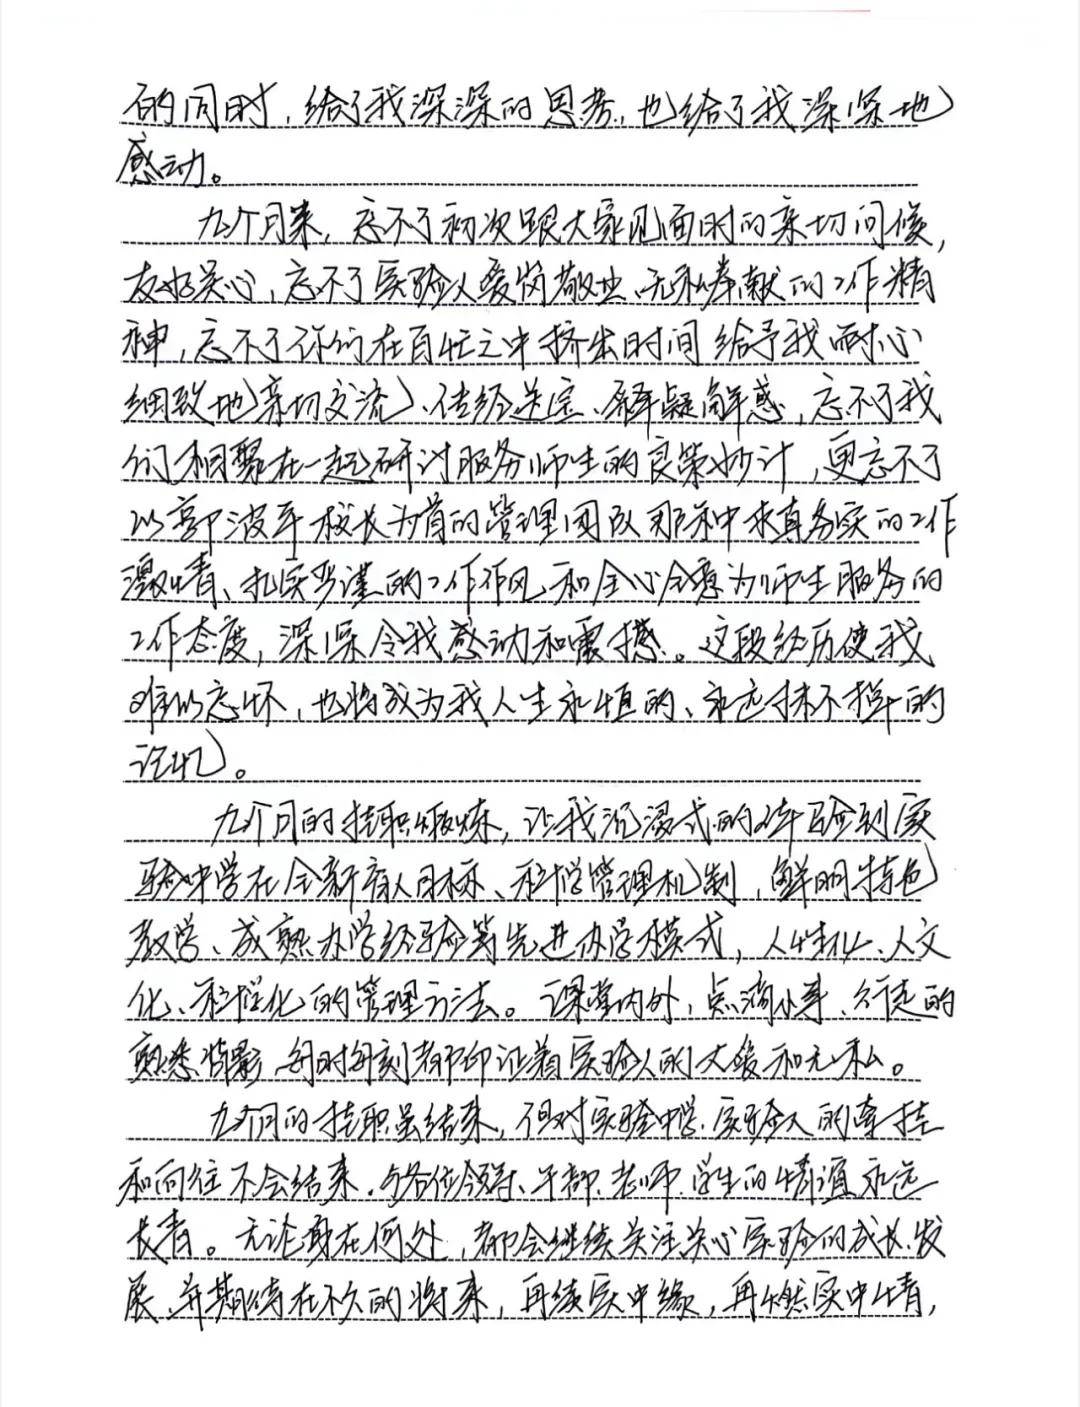 的同时，给了我深深的思考，也给了我深深地
感动。
九个月来，忘不了初次跟大家见面时的亲切问候，
友好关心，忘不了实验人爱岗敬业、无私奉献的工作精
神，忘不了你们在百忙之中挤出时间给予我耐心
细致地亲切交流、传经送宝、释疑解惑，忘不了我
们相聚在一起研讨服务师生的良策妙计，更忘不了
以郭波军校长为首的管理团队那种求真务实的工作
激情、扎实严谨的工作作风和全心全意为师生服务的
工作态度，深深令我感动和震撼。这段经历使我
难以忘怀，也将成为我人生永恒的、永远抹不掉的
记忆。
九个月的挂职锻炼，让我沉浸式的体验到实
验中学在全新育人目标、科学管理机制，鲜明特色
教学、成熟办学经验等先进办学模式，人性化、人文
化、科学化的管理方法。课堂内外，点滴小事、行走的
熟悉背影，每时每刻都印证着实验人的大爱和无私。
九个月的挂职虽结束，但对实验中学、实验人的牵挂
和向往不会结束，与各位领导、干部、老师、学生的情谊永远
长青。无论身在何处，都会继续关注关心实验的成长、发
展，并期待在不久的将来，再续实中缘，再燃实中情，